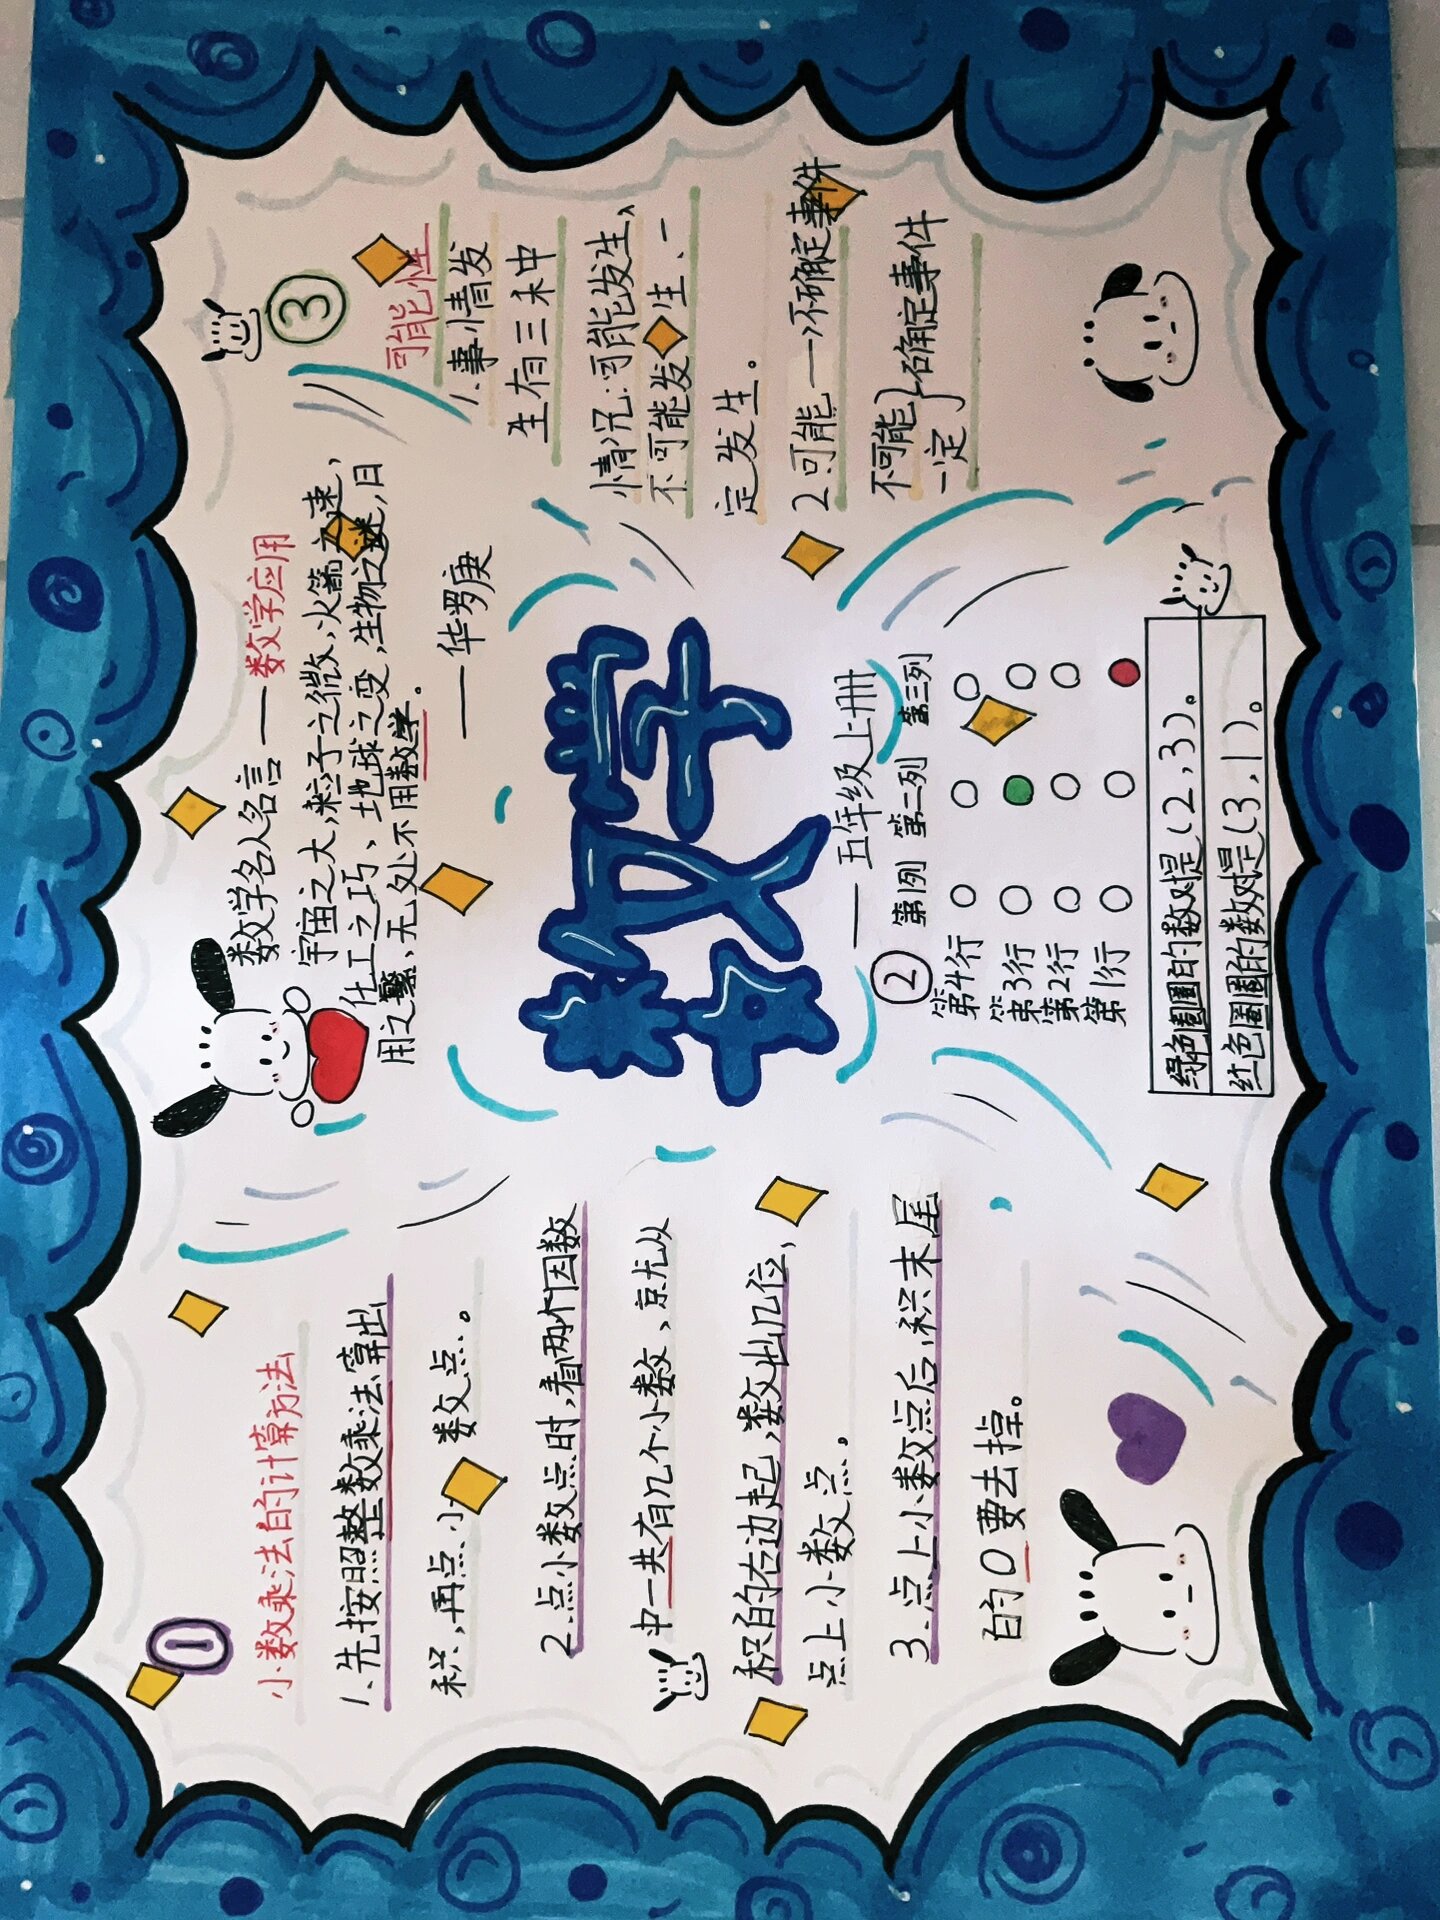 ①
小数乘法的计算方法
1、先按照整数乘法算出
积，再点小数点。
2.点小数点时，看两个因数
中一共有几个小数、就从
积的右边起，数出几位，
点上小数点。
3.点上小数点后，积末尾
的0要去掉。
数学名人名言——数学应用
宇宙之大，粒子之微，火箭之速，
化工之巧、地球之变，生物之谜，日
用之繁、无处不用数学。
——华罗庚
数学
——五年级上册
②
第1列 第二列 第三列
第4行
第3行
第2行
第1行
绿色圈圈的数对是（2，3）。
红色圈圈的数对是（3，1）。
③
可能性
1、事情发
生有三种
情况：可能发生、
不可能发生、一
定发生。
2.可能—>不确定事件
不可能}确定事件
一定